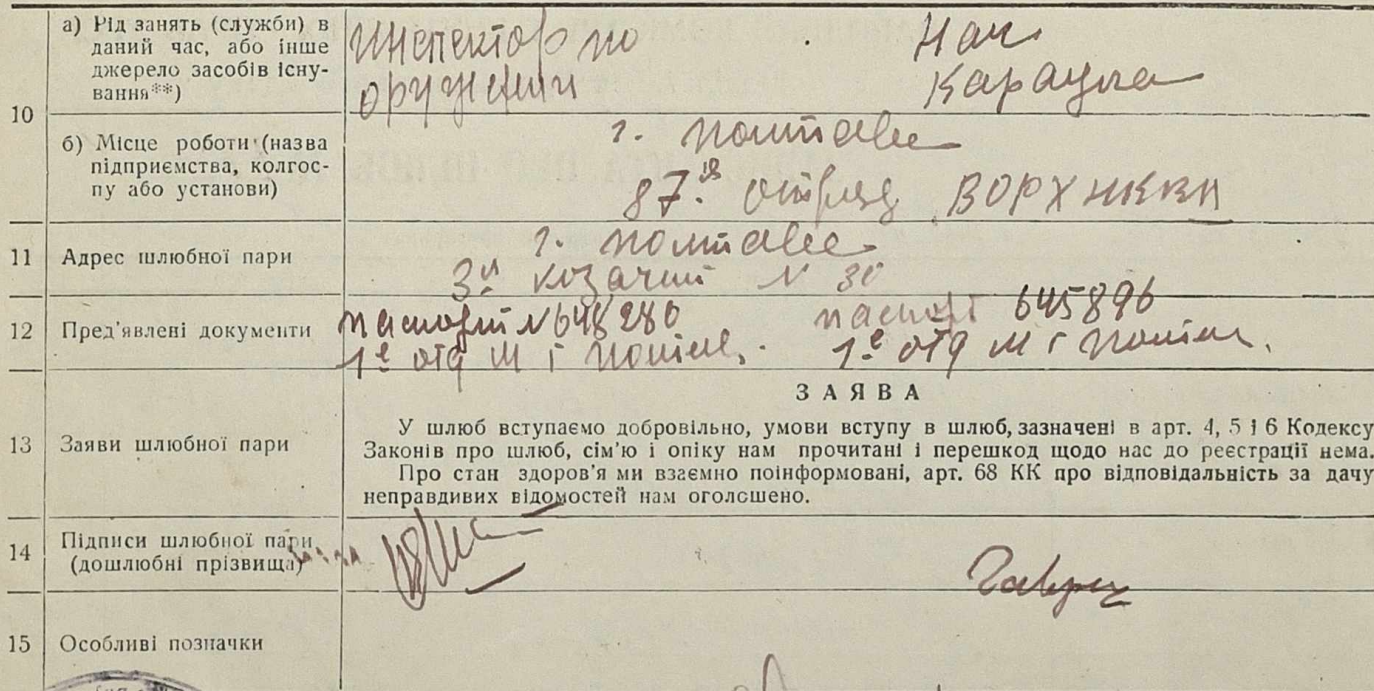 10
а) Рід занять (служби) в
даний час, або інше
джерело засобів існу-
вання**)
Инспектор по
оружии
Нач.
Караула
б) Місце роботи (назва
підприємства, колгос-
пу або установи)
г. Полтава
87й отряд ВОРХ НКВД
11
Адрес шлюбної пари
г. Полтава
3й козачий N 30
12
Пред'явлені документи
паспорт N 648280
1е отд М г Полтав.
паспорт 645896
1е отд М г Полтав.
13
Заяви шлюбної пари
ЗАЯВА
У шлюб вступаємо добровільно, умови вступу в шлюб, зазначені в арт. 4, 5 і 6 Кодексу
Законів про шлюб, сім'ю і опіку нам прочитані і перешкод щодо нас до реєстрації нема.
Про стан здоров'я ми взаємно поінформовані, арт. 68 КК про відповідальність за дачу
неправдивих відомостей нам оголошено.
14
Підписи шлюбної пари
(дошлюбні прізвища)
15
Особливі позначки